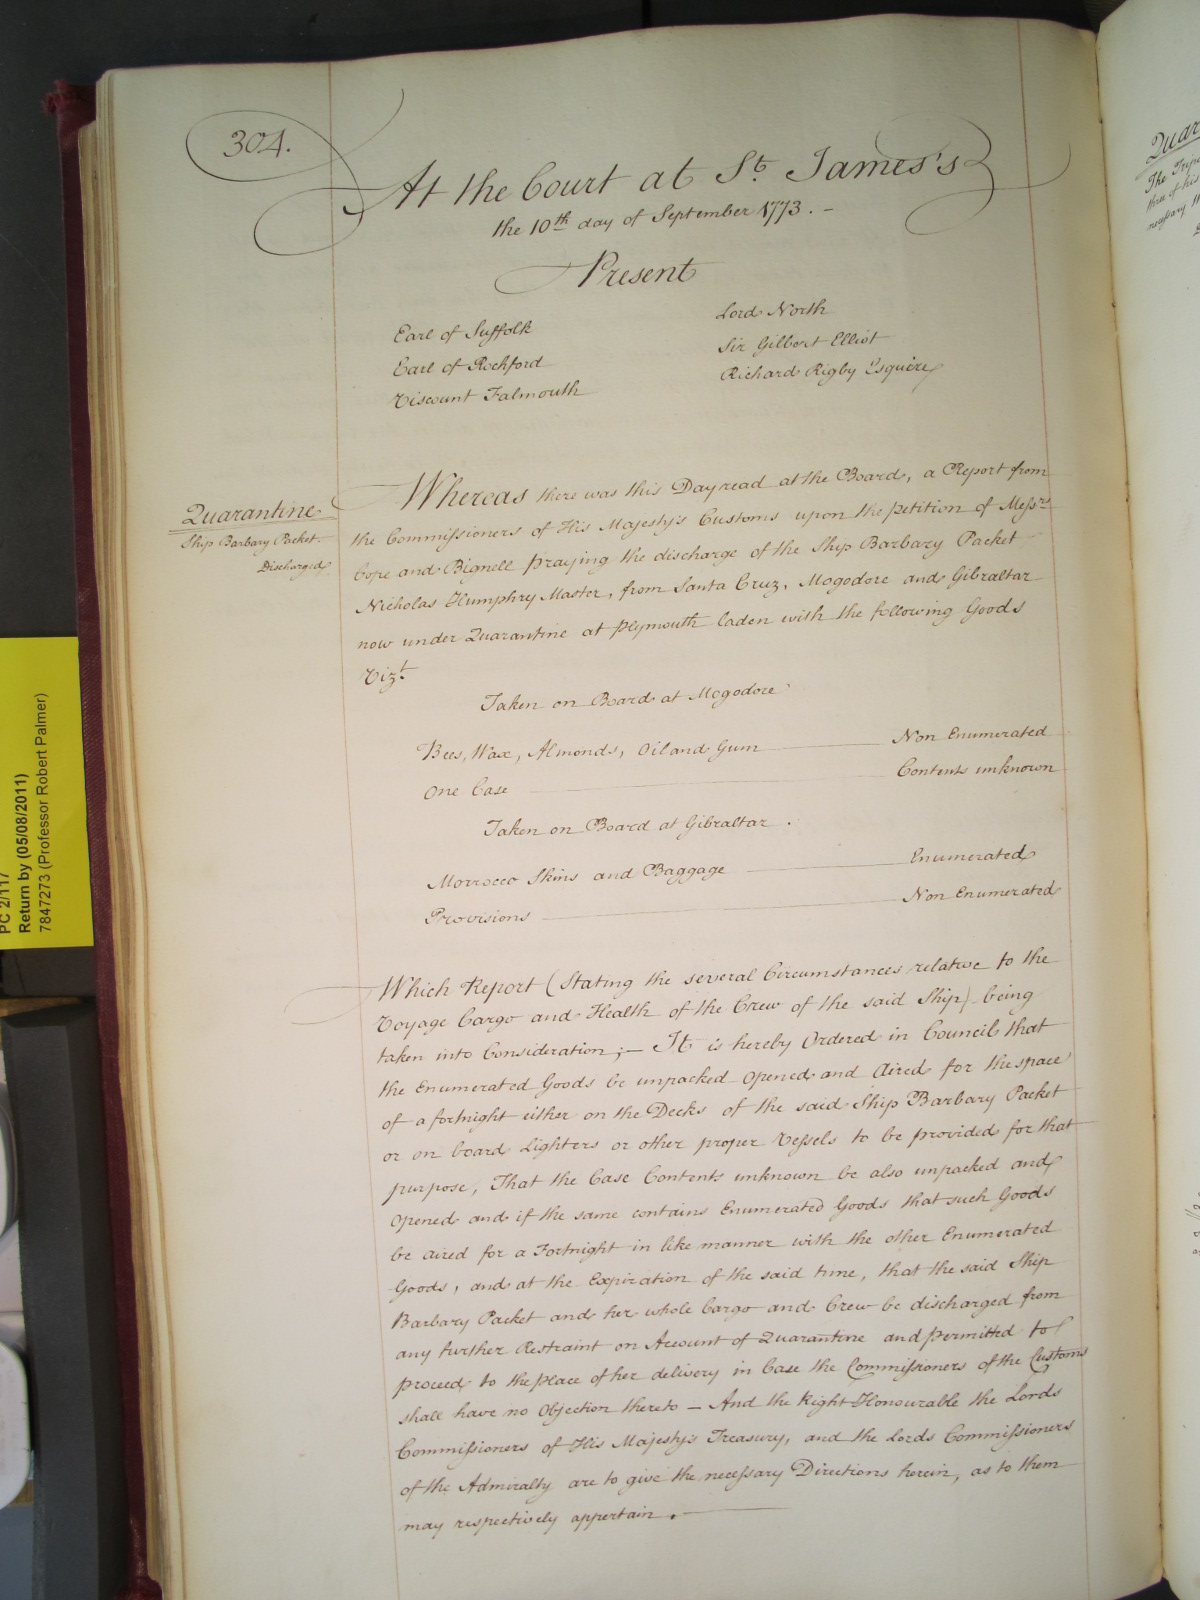 304.
At the Court at St. James's
the 10th day of September 1773. -
Present
Earl of Suffolk
Earl of Rochford
Viscount Falmouth
Lord North
Sir Gilbert Elliot
Richard Rigby Esquire
Quarantine
Ship Barbary Packet.
Discharged
Whereas there was this Day read at the Board, a Report from
the Commissioners of His Majesty's Customs upon the petition of Messrs
Cope and Bignell praying the discharge of the Ship Barbary Packet
Nicholas Humphry Master, from Santa Cruz, Mogodore and Gibraltar
now under Quarantine at Plymouth laden with the following Goods
Vizt.
Taken on Board at Mogodore
Bees, Wax, Almonds, Oil and Gum Non Enumerated
One Case Contents unknown
Taken on Board at Gibraltar .
Morrocco Skins and Baggage Enumerated
Provisions Non Enumerated
Which Report (Stating the several Circumstances relative to the
Voyage Cargo and Health of the Crew of the said Ship) being
taken into Consideration; — It is hereby Ordered in Council that
the Enumerated Goods be unpacked Opened and Aired for the space
of a fortnight either on the Decks of the said Ship Barbary Packet
or on board Lighters or other proper Vessels to be provided for that
purpose, That the Case Contents unknown be also unpacked and
Opened and if the same contains Enumerated Goods that such Goods
be aired for a Fortnight in like manner with the other Enumerated
Goods, and at the Expiration of the said time, that the said Ship
Barbary Packet and her whole Cargo and Crew be discharged from
any further Restraint on Account of Quarantine and permitted to
proceed to the place of her delivery in Case the Commissioners of the Customs
shall have no Objection thereto — And the Right Honourable the Lords
Commissioners of His Majesty's Treasury, and the Lords Commissioners
of the Admiralty are to give the necessary Directions herein, as to them
may respectively appertain.
PC 2/117
Return by (05/08/2011)
7847273 (Professor Robert Palmer)